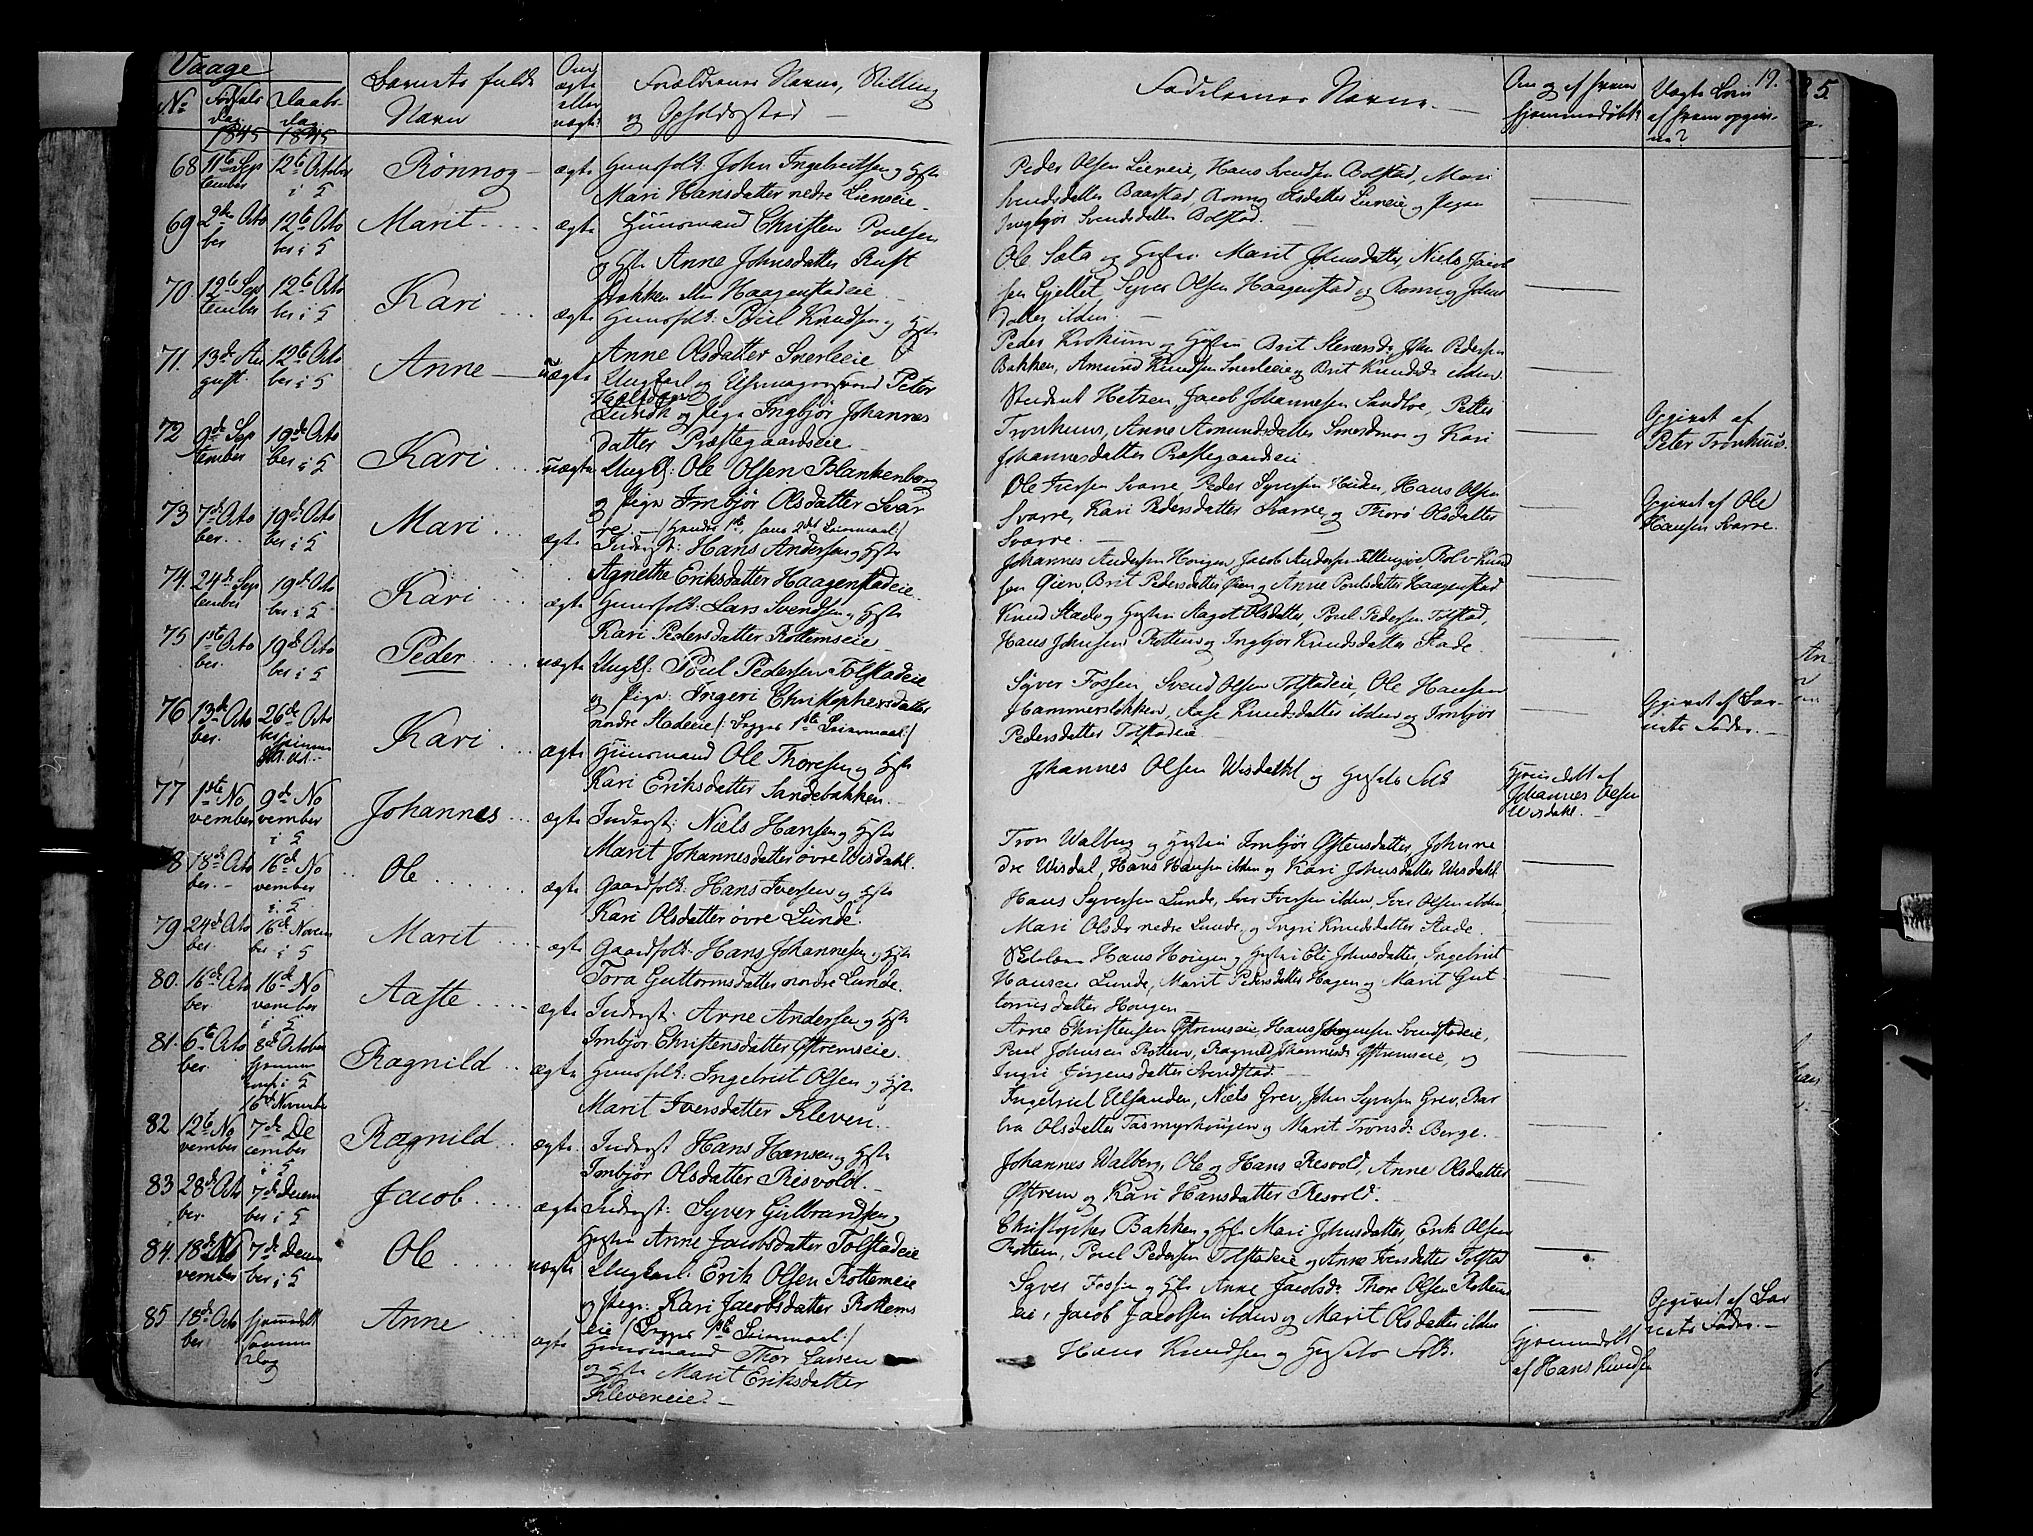 Vaage
No
Fødsels Dag 1845
Daabs Dag 1845
Barnets fulde Navn
Om ægte eller uægte?
Forældrenes Navne, Stilling og Opholdssted
Faddernes Navne.
Om og af hvem hjemmedøbt?
af hvem opgiven?
19.
5
68 11te September 12te October i K
Rønnog
ægte
Huusfolk: John Ingebretsen og Hstr
Mari Hansdatter nedre Lienseie.
Peder Olsen Lieneie, Hans Svendsen Bolstad, Mari
Svendsdatter Baarstad, Rønnog Olsdatter Lieneie og Pigen
Ingbjør Svendsdatter Bolstad.
69 2den October 12te October i K
Marit
ægte
Huusmand Christen Poulsen
og Hstr Anne Johnsdatter Rust
bakken eller Haagenstadeie
Ole Sata og Hustru Marit Johnsdatter, Niels Jacob
sen Gjellet, Syver Olsen Haagenstad og Rønnog Johns
datter ibden.
70. 12te September 12te October i K
Kari
ægte
Huusfolk: Poul Knudsen og Hstr
Anne Olsdatter Snerleeie
Peder Krokum og Hustru Brit Steners Dr John Pedersen
Bakken, Amund Knudsen Snerleeie og Brit Knuds Dr ibden.
71. 13de August 12te October i K
Anne
uægte
Ungkarl og Uhrmagersvend Peter
Lundh og Pige Ingbjør Johannes
datter Præstegaardseie
Student Hetzen, Jacob Johannesen Sandboe, Petter
Tronhuus, Anne Amundsdatter Smedsmo og Kari
Johannesdatter Præstegaardseie
Opgivet af
Peter Tronhuus.
72 9de September 19de October i K
Kari
uægte
Ungk: Ole Olsen Blankenborg
og Pige Imbjør Olsdatter Svar
re / Hendes 1ste hans 2det Leiermaal /
Ole Iversen Svarre, Peder Syversen Heiden, Hans Olsen
Svarre, Kari Pedersdatter Svarre, og Thore Olsdatter
Svarre.
Opgivet af Ole
Hansen Svarre.
73 7de October 19de October i K
Mari
ægte
Inderst: Hans Andersen og Hstr
Agnethe Eriksdatter Haagenstadeie.
Johannes Andersen Hougen, Jacob Andersen Poul Knud
sen Øien, Brit Pedersdatter Øien og Anne Poulsdatter Haagenstad
74. 24de September 19de October i K
Kari
ægte
Huusfolk: Lars Svendsen og Hstr
Kari Pedersdatter Rottemseie
Knud Stade og Hustru Aagot Olsdatter, Poul Pedersen Tolstad,
Hans Johnsen Rottem og Ingbjør Knudsdatter Stade.
75 1ste October 19de October i K
Peder
uægte
Ungk: Poul Pedersen Tolstadeie
og Pige: Ingeri Christophersdatter
nordre Stadeie / Begges 1ste Leiermaal /
Syver Fossen, Svend Olsen Tolstadeie, Ole Hansen
Hammersløkken, Aase Knudsdatter ibden og Imbjør
Pedersdatter Tolstadeie
Opgivet af Bar-
nets Fader.
76 13de October 26de October
Kari
ægte
Huusmand Ole Thoresen og Hstr
Kari Eriksdatter Sandebakken.
Johannes Olsen Wisdahl, og Husets Folk
Hjemmedøbt af
Johannes Olsen
Wisdahl.
77 1ste November 9de November i K
Johannes
ægte
Inderst: Niels Hansen og Hstr
Marit Johannesdatter øvre Wisdahl.
Tron Walberg og Hustru Imbjør Østensdatter, Johanne
dre Wisdal, Hans Hansen ibden og Kari Johnsdatter Wisdahl
78 18de October 16de November i K
Ole
ægte
Gaardfolk: Hans Iversen og Hstr
Kari Olsdatter øvre Lunde.
Hans Syversen Lunde, Iver Iversen ibden, Iver Olsen ibden
Mari Olsdr nedre Lunde, og Ingri Knudsdatter Stade.
79 24de October 16de November i K
Marit
ægte
Gaardfolk: Hans Johannesen og Hstr
Tora Guttormsdatter nordre Lunde.
Hans Hougen og Hustru Eli Johnsdatter, Ingebrit
Hansen Lunde, Marit Pedersdatter Hagen og Marit Gut
tormsdatter Hougen
80. 16de October 16de November i K
Aaste
ægte
Inderst: Arne Andersen og Hstr
Imbjør Christensdatter Øfremseie.
Arne Christensen Øfremseie, Hans Jørgensen Svendstadeie,
Poul Johnsen Rottem, Ragnild Johannesdr Øfremseie, og
Ingri Jørgensdatter Svendstad.
81. 6te October 8de October Hjemme i K 16de November
Ragnild
ægte
Huusfolk: Ingebrit Olsen og Hstr
Marit Iversdatter Kleven.
Ingebriet Ulsanden, Niels Grev, John Syversen Grev, Bar
bra Olsdatter Tasmyrhougen og Marit Trons Dr Berge.
82. 12te November 7de December i K
Ragnild
ægte
Inderst Hans Hansen og Hstr
Imbjør Olsdatter Resvold.
Johannes Walberg, Ole og Hans Resvold, Anne Olsdatter
Øfrem og Kari Hansdatter Resvold.
83 28de October 7de December i K
Jacob
ægte
Inderst: Syver Gulbrandsen og
Hustru Anne Jacobsdatter Tolstadeie
Christopher Bakken og H. Mari Johnsdatter, Erik Olsen
Rottem, Poul Pedersen Tolstadeie og Anne Iversdatter Tolstad
84. 18de November 7de December i K
Ole
uægte
Ungkarl: Erik Olsen Rottemeie
og Pige: Kari Jacobsdatter Rottems
eie / Begges 1ste Leiermaal /
Syver Fossen og Hstr Anne Jacobsdr Thore Olsen Rottems
eie, Jacob Jacobsen ibden og Marit Olsdatter ibden
Opgivet af Bar
nets Fader.
85 18de October Hjemmedøbt samme Dag
Anne
ægte
Huusmand Thor Larsen
og Hstr Marit Eriksdatter
Kleveneie.
Hans Knudsen og Husets Folk.
Hjemmedøbt
af Hans Knudsen